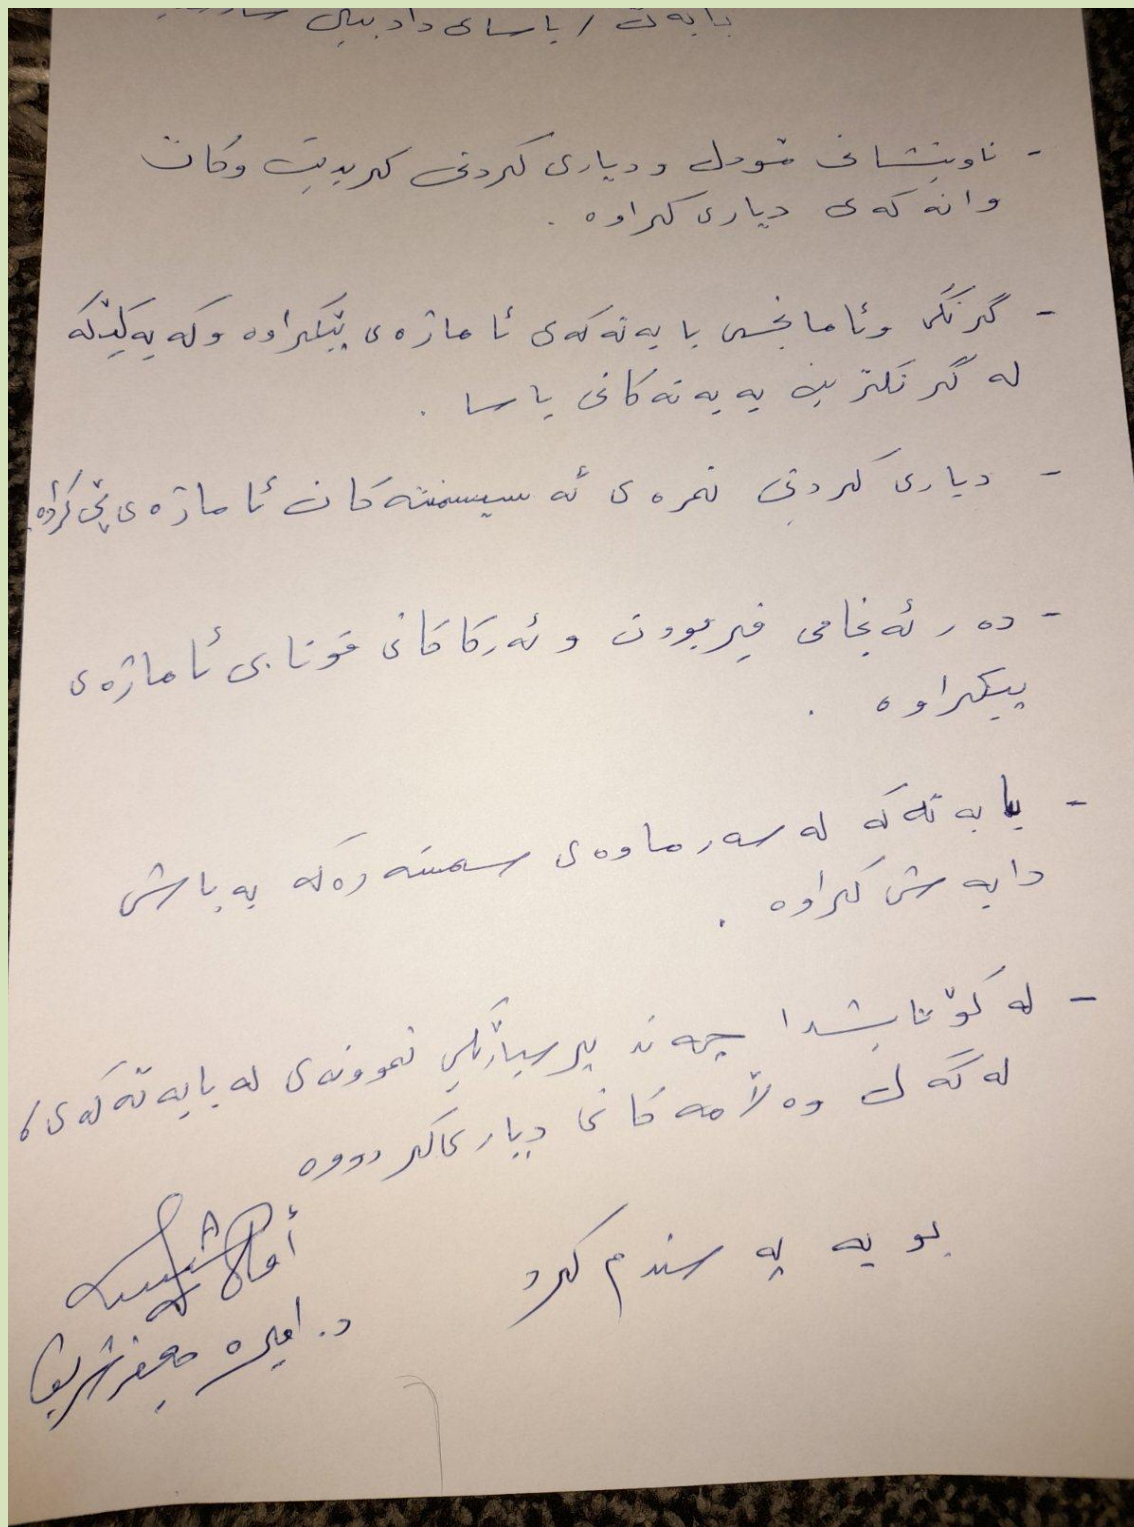 بابەت / یاسای دادبینی
- ناونیشانی مۆدل و دیاری کردنی کریدیت وکات
وانەکەی دیاری کراوە .
- گرنگی وئامانجی بابەتەکەی ئاماژەی پێکراوە وکە یەکێکە
لە گرنکترین بەبەتەکانی یاسا .
- دیاری کردنی نمرەی ئەسیسمنتەکان ئاماژەی پێ کراوە
- دەرئەنجامی فێربوون و ئەرکاکانی قوتابی ئاماژەی
پیکراوە .
- بابەتەکە لەسەر ماوەی سمستەرەکە بەباشی
دابەش کراوە .
- لە کۆتایشدا چەند پرسیارێکی نموونەی لە بابەتەکەی
لەگەل وەلآمەکانی دیاری کردووە
بویە پەسندم کرد
د. امیرە جعفر شریف